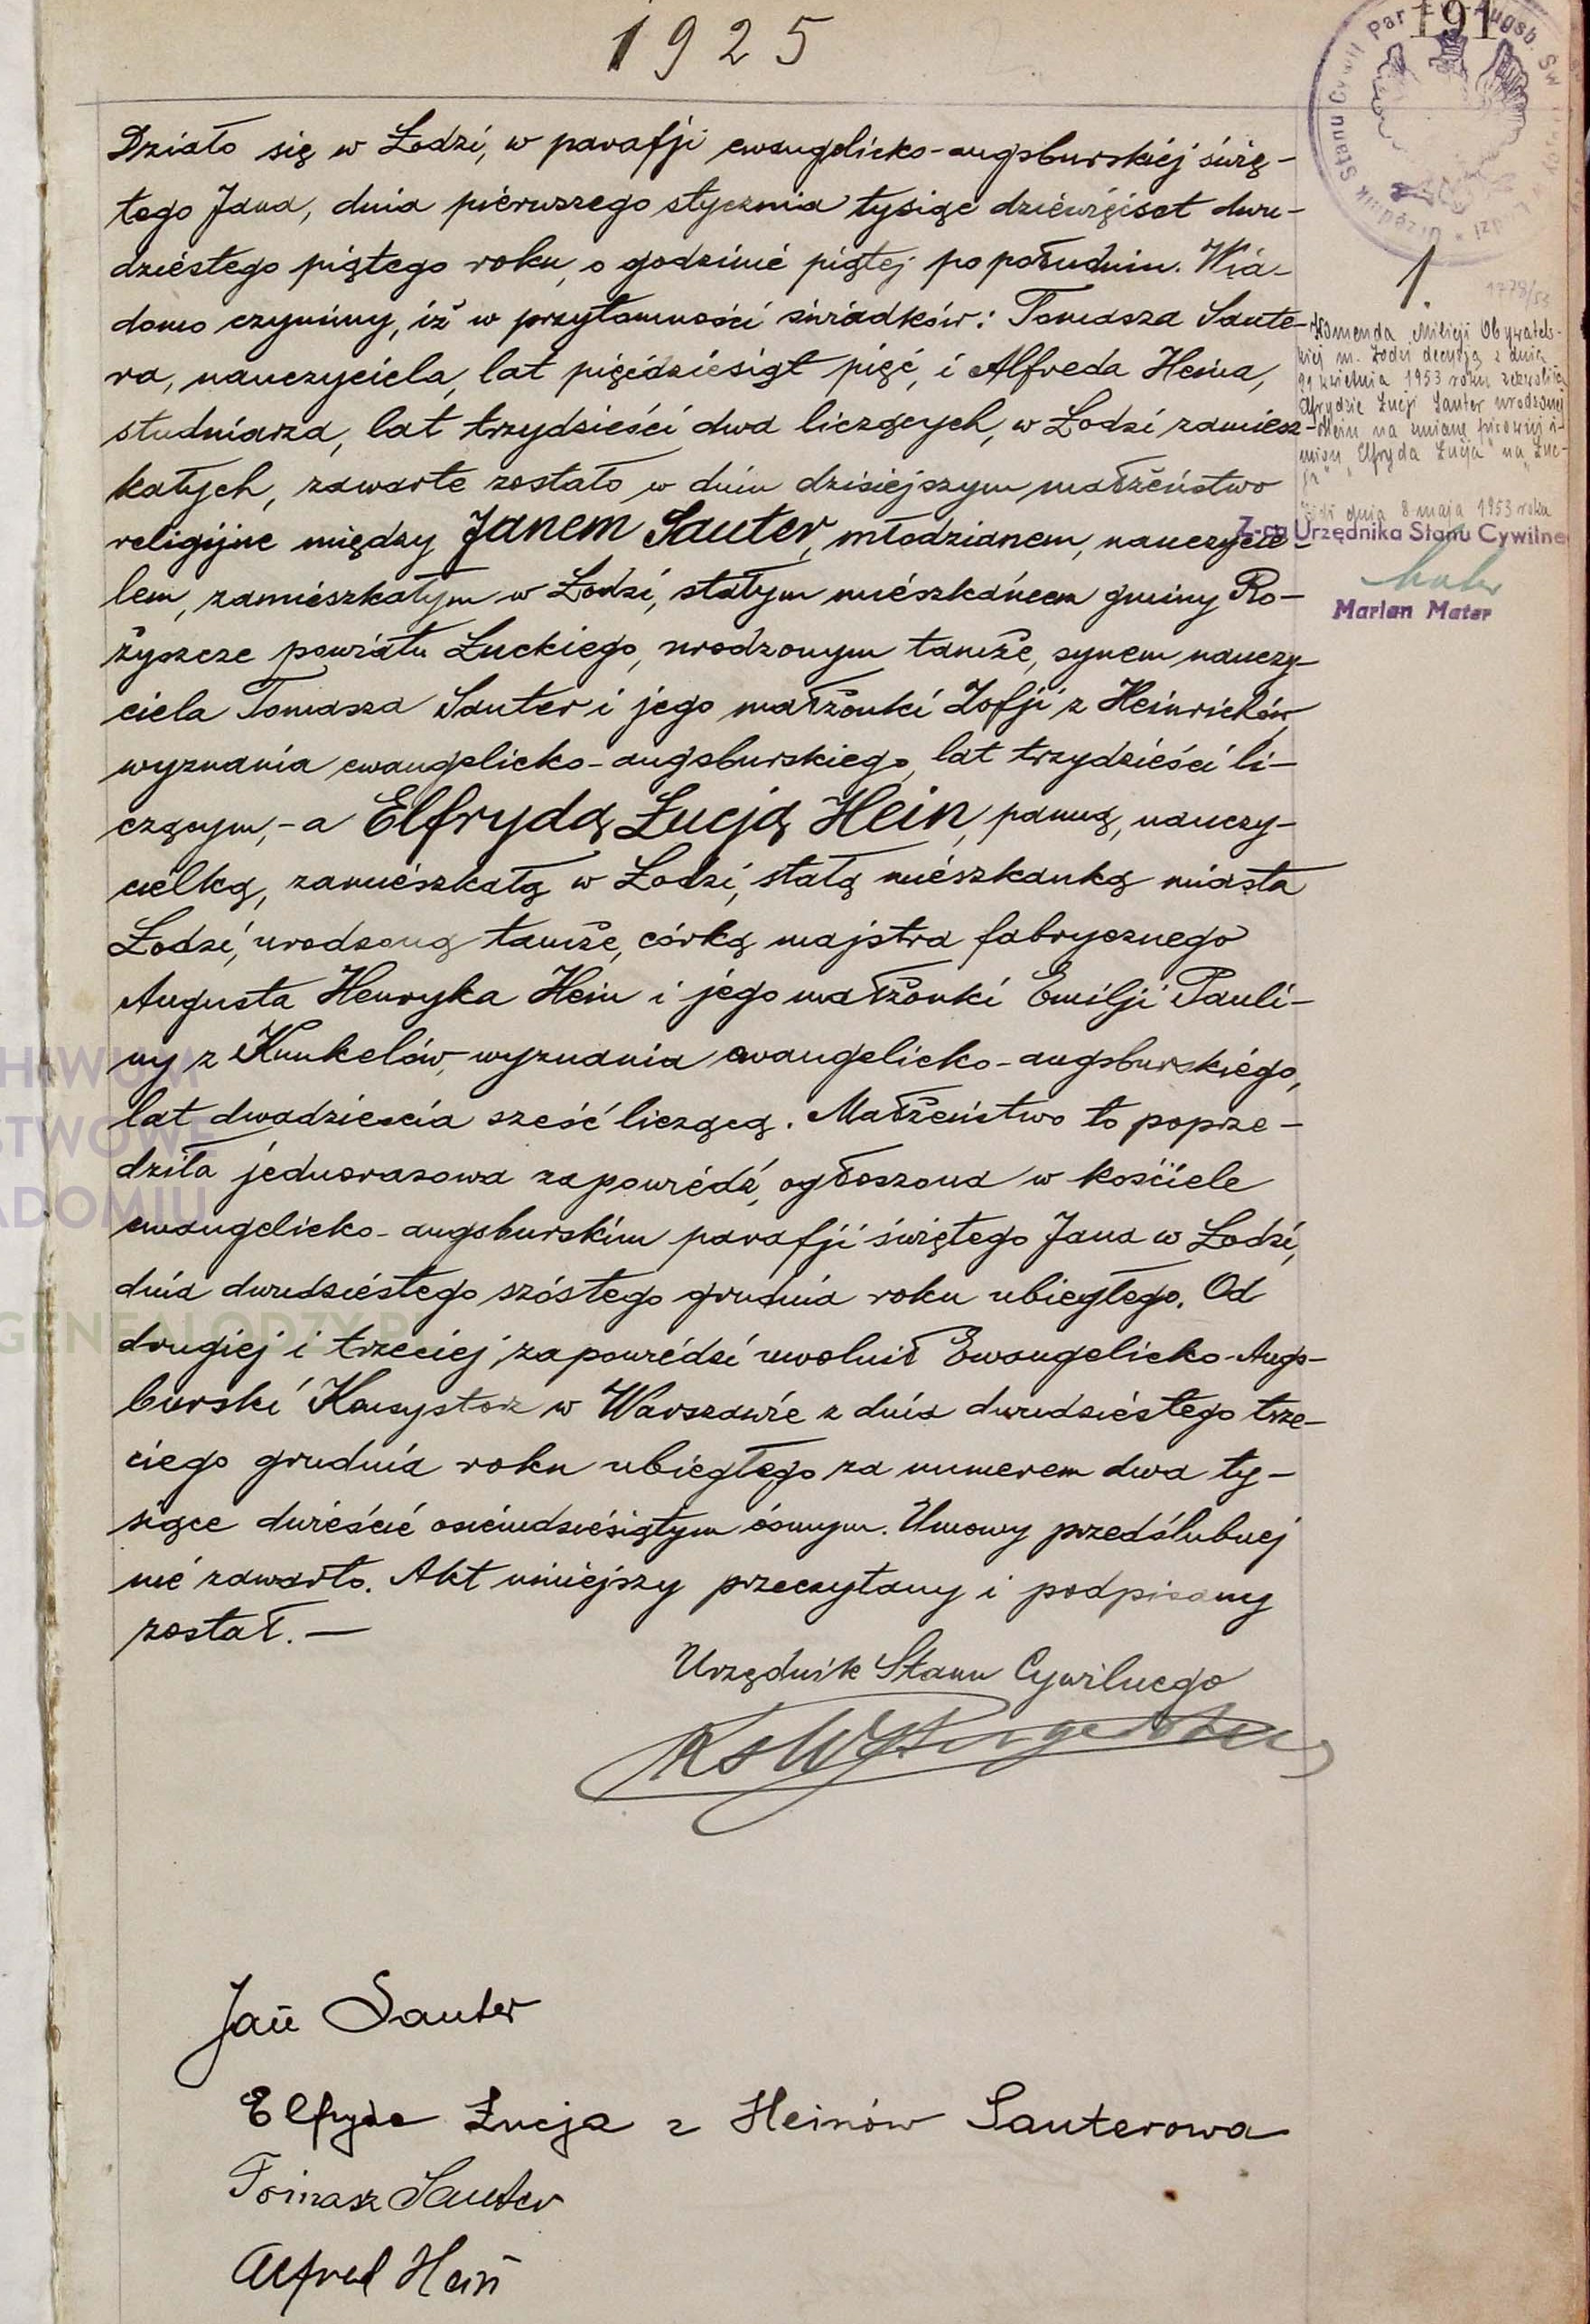 1925
191
Działo się w Łodzi, w parafji ewangelicko-augsburskiej świę-
tego Jana, dnia pierwszego stycznia tysiąc dziewięćset dwu-
dziestego piątego roku, o godzinie piątej po południu. Wia-
domo czynimy, iż w przytomności świadków: Tomasza Saute-
ra, nauczyciela, lat pięćdziesiąt pięć, i Alfreda Heina,
studniarza, lat trzydzieści dwa liczących, w Łodzi zamiesz-
kałych, zawarte zostało w dniu dzisiejszym małżeństwo
religijne między Janem Sauter, młodzianem, nauczycie-
lem, zamieszkałym w Łodzi, stałym mieszkańcem gminy Ro-
żyszcze powiatu Łuckiego, urodzonym tamże, synem nauczy-
ciela Tomasza Sauter i jego małżonki Zofji z Heinrichów,
wyznania ewangelicko-augsburskiego, lat trzydzieści li-
czącym,-a Elfrydą Łucją Hein, panną, nauczy-
cielką, zamieszkałą w Łodzi, stałą mieszkanką miasta
Łodzi, urodzoną tamże, córką majstra fabrycznego
Augusta Henryka Hein i jego małżonki Emilji Pauli-
ny z Kunkelów, wyznania ewangelicko-augsburskiego,
lat dwadzieścia sześć liczącą. Małżeństwo to poprze-
dziła jednorazowa zapowiedź, ogłoszona w kościele
ewangelicko-augsburskim parafji świętego Jana w Łodzi,
dnia dwudziestego szóstego grudnia roku ubiegłego. Od
drugiej i trzeciej zapowiedzi uwolnił Ewangelicko-Augs-
burski Konsystorz w Warszawie z dnia dwudziestego trze-
ciego grudnia roku ubiegłego za numerem dwa ty-
siące dwieście osiemdziesiątym ósmym. Umowy przedślubnej
nie zawarto. Akt niniejszy przeczytany i podpisany
został.—
Urzędnik Stanu Cywilnego
Jan Sauter
Elfryda Łucja z Heinów Sauterowa
Tomasz Sauter
Alfred Hein
Urzędnik Stanu Cywil Par Ew. Augsb. Św
1.
1778/53
Komenda Milicji Obywatels-
kiej m. Łodzi decyzją z dnia
21 kwietnia 1953 roku zezwoliła
Elfrydzie Łucji Sauter urodzonej
Hein na zmianę pisowni i-
mion "Elfryda Łucja" na "Łuc-
dnia 8 maja 1953 roku
Z-ca Urzędnika Stanu Cywilne
Marian Mater
HIWUM
STWOWE
ADOMIU
GENEALODZY.P